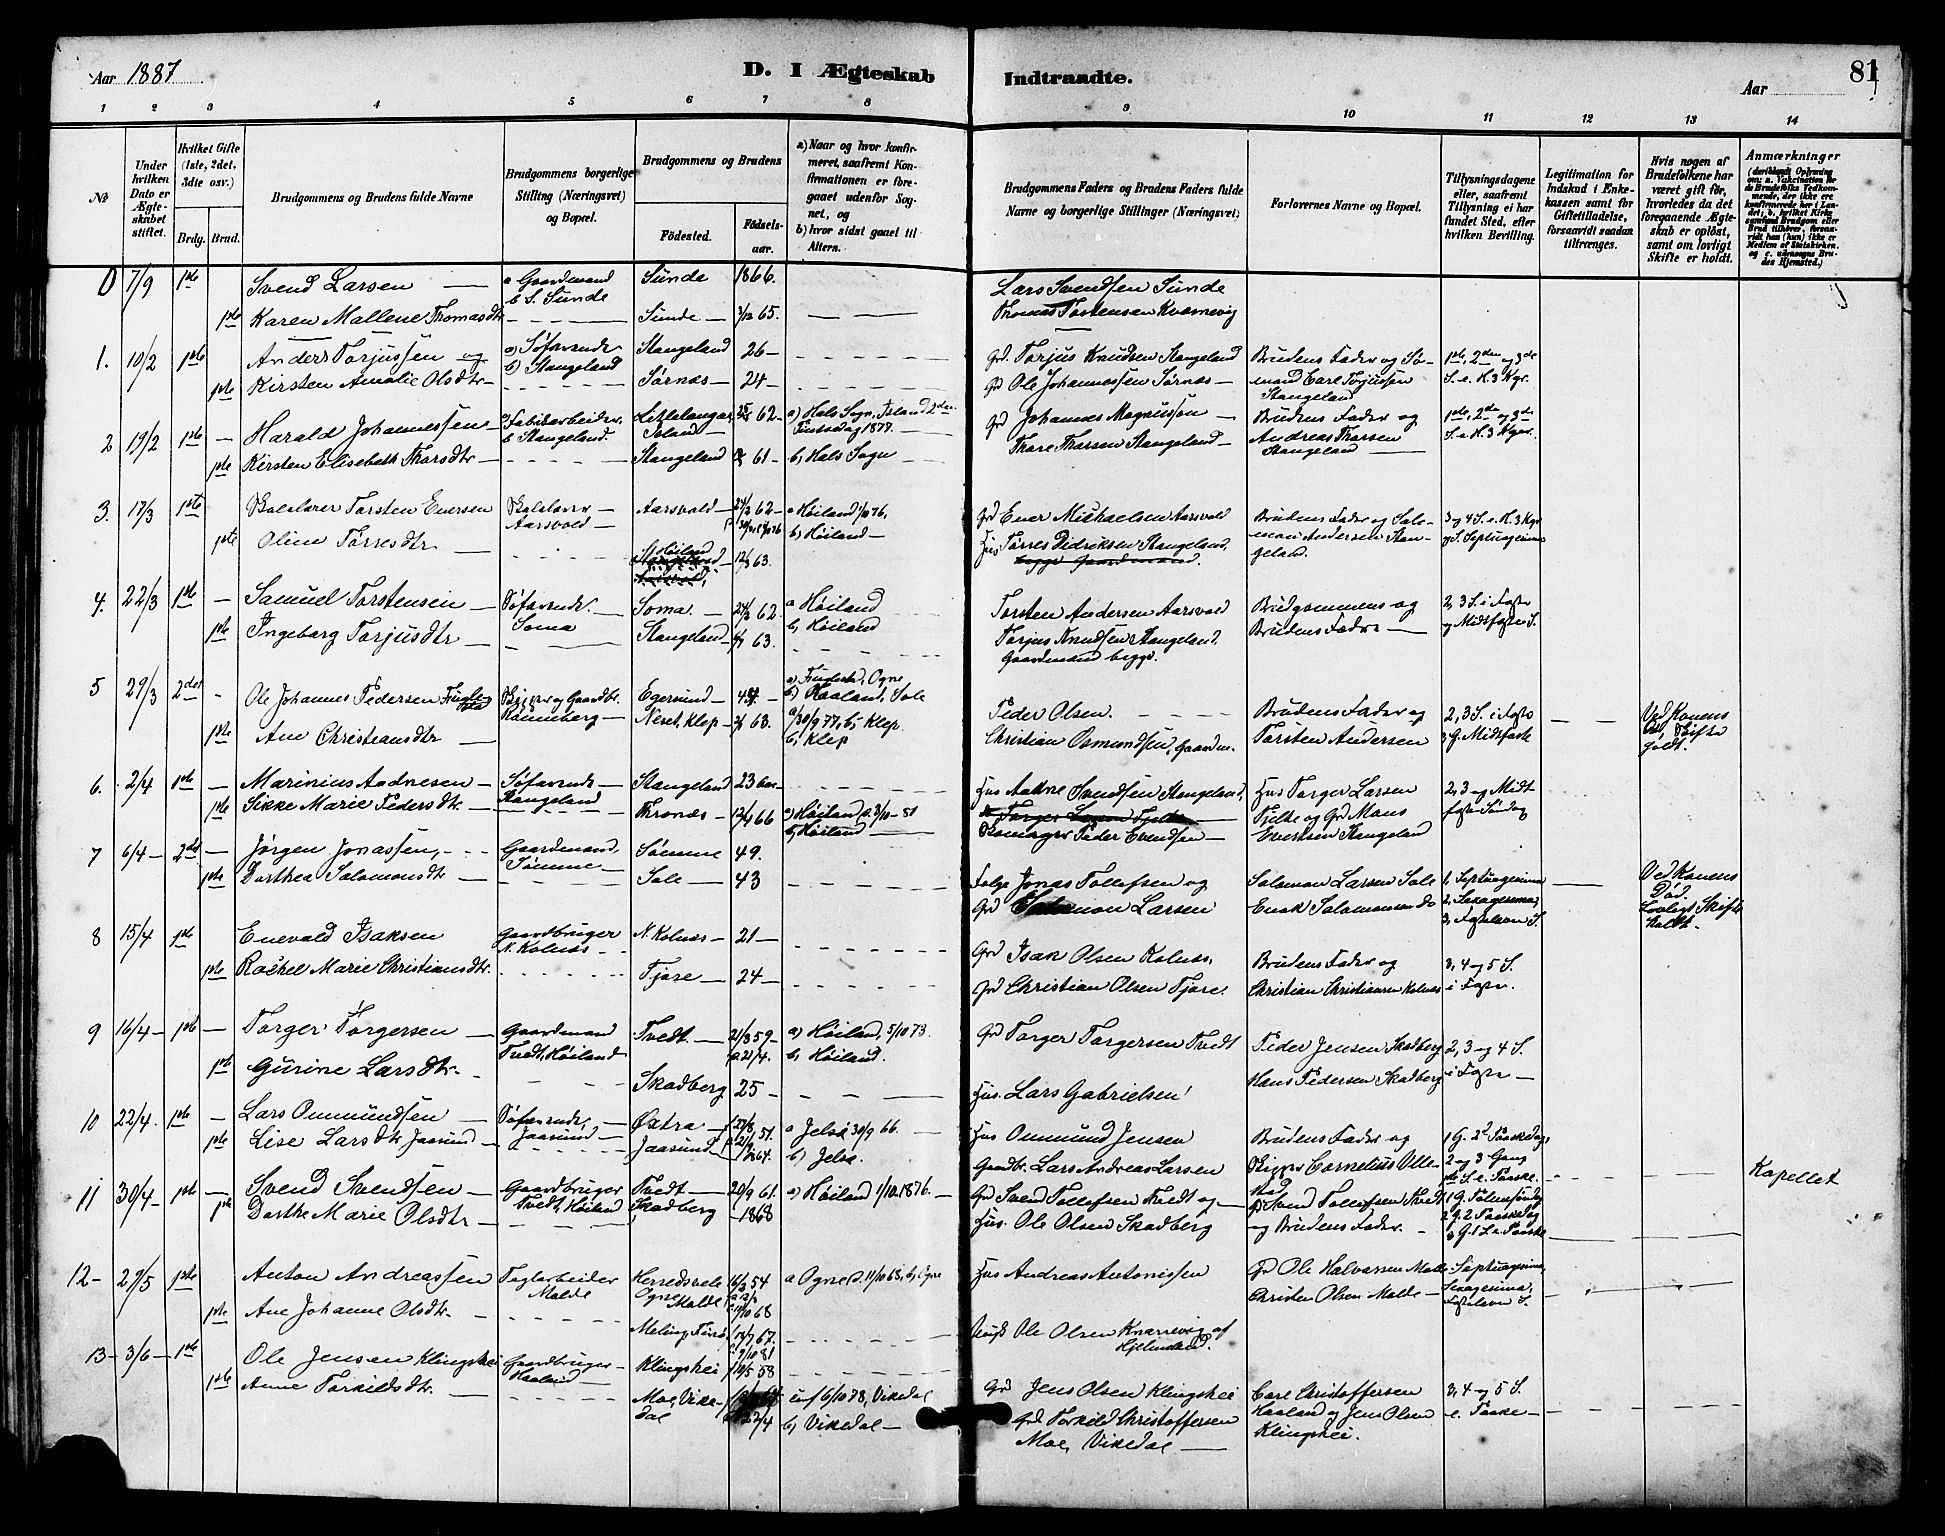 Aar 1887
D. I Ægteskab Indtraadte.
Aar
81
1 2 3 4 5 6 7 8 9 10 11 12 13 14
No
Under hvilken Dato er Ægteskabet stiftet.
Hvilket Gifte (1ste, 2det, 3die osv.)
Brdg. Brud.
Brudgommens og Brudens fulde Navne
Brudgommens borgerlige Stilling (Næringsvei) og Bopæl.
Brudgommens og Brudens
Fødested.
Fødselsaar.
a) Naar og hvor konfirmeret, saafremt Konfirmationen er foregaaet udenfor Sognet, og
b) hvor sidst gaaet til Alters.
Brudgommens Faders og Brudens Faders fulde Navne og borgerlige Stillinger (Næringsvei)
Forlovernes Navne og Bopæl.
Tillysningsdagene eller, saafremt Tillysning ei har fundet Sted, efter hvilken Bevilling.
Legitimation for Indskud i Enkekassen samt for Giftetilladelse, forsaavidt saadan tiltrænges.
Hvis nogen af Brudefolkene har været gift før, hvorledes da det foregaaende Ægteskab er opløst, samt om lovligt Skifte er holdt.
Anmærkninger
0 7/9 1ste Svend Larsen a Gaardmand b S. Sunde Sunde 1866. Lars Svendsen Sunde
1ste Karen Mallene Thomasdtr Sunde 65. Thomas Torstensen Kvernevig
1. 10/2 1ste Anders Torjussen og a) Søfarende b) Stangeland Stangeland 26 Grd. Torjus Knudsen Stangeland Brudens Fader og Sømand Carl Torjussen Stangeland 1ste, 2den og 3die S. e. H. 3 Kgr.
1ste Kirsten Amalie Olsdtr Sørnæs 24 Gr Ole Johannessen Sørnæs
2 19/2 1ste Harald Johannessen Fabrikarbeider b Stangeland Island 62 a) Hals Sogn, Island 2den Pintsedag 1877. Gr Johannes Magnussøn Brudens Fader og Andreas Tharsen Stangeland 1ste, 2den og 3die S. e. H. 3 Kgr.
1ste Kirsten Elisebeth Tharsdtr Stangeland 61 b) Hals Sogn Thore Tharsen Stangeland
3. 17/3 1ste Torsten Enersen Aarsvold Aarsvold 62 a Høiland 1/10 76, Grd Ener Michaelsen Aarsvold Brudens Fader og Saloman Andersen Stangeland. 3 og 4 S. e. H. 3 Kgr og S. Septuagesima
1ste Oline Torresdtr Høiland 63. b) Høiland Torres Didriksen Stangeland,
4. 22/3 1ste Samuel Torstensen Søfarende Soma Soma 24/3 62. a Høiland Torsten Andersen Aarsvold Brudgommens og Brudens Fader 2, 3 S. i Faste og Midfaste S.
1ste Ingeborg Torjusdtr Stangeland 63 b) Høiland Torjus Knudsen Stangeland. Gaardmænd begge.
5 29/3 2det Ole Johannes Pedersen Fuglestad Skipper og Gaardbr. Rønneberg Egersund 44 a) Fuglestad, Ogne b) Haaland, Sole Peder Olsen. Brudens Fader og Torsten Andersen 2, 3 S. i Faste 3 G. Midfaste Ved Konens Død, Skifte holdt.
1ste Ane Christiansdtr Neset, Klep 63. a/ 30/9 77, b, Klep b, Klep Christian Osmundsen, Gaardm.
6. 2/4 1ste Marinius Aadnesen Søfarende Stangeland Stangeland 23 Hus Aadne Svendsen Stangeland, Hus Torger Larsen Tjelte og Gr Mons Evertsen Stangeland 2, 3 og Midtfaste Søndag
1ste Sikke Marie Pedersdtr Thronæs 12/4 66 a) Høiland d. 3/10-81 b, Høiland Peder Evendsen
7 6/4 2det Jørgen Jonassen, Gaardmand, Sømme Sømme 49. Jonas Tollefsen og Salomon Larsen Sole 1, Septuagesima 2, Sexagesima, 3, Fastelavn S. Ved Konens Død Lovligt Skifte holdt.
1ste Dorthea Salomonsdtr Sole 43 Grd Salomon Larsen Enok Salomonsen do
8 15/4 1ste Enevald Isaksen Gaardbruger N. Kolnæs N. Kolnæs 21 Grd Isak Olsen Kolnæs, Brudens Fader og 3, 4 og 5 S. i Faste.
1ste Rachel Marie Christiansdtr. Tjore 24 Gr Christian Olsen Tjore. Christian Christiansen Kolnæs
9 16/4 1ste Torger Torgersen Gaardmand Tvedt, Høiland Tvedt 21/3 59 a) Høiland, 5/10 73. b, Høiland. Gr Torger Torgersen Tvedt Peder Jensen Skadberg 2, 3 og 4 S. i Faste
1ste Gurine Larsdtr. Skadberg 25 Hus. Lars Gabrielsen Hans Pedersen Skadberg
10 22/4. 1ste Lars Onmundsen Søfarende, Jaasund Østra 51. a Jelse 30/9 66. Hus Onmund Jensen Brudens Fader og 1 G. 2d Paaskedag, 2 og 3 Gang 1ste S. e. Paaske.
1ste Lise Larsdtr Jaasund Jaasund 64. b) Jelse. Gaardbr. Lars Andreas Larsen Skipper Cornelius
11 30/4 1ste Svend Svendsen Gaardbruger Tvedt, Høiland Tvedt 20/9 61. a) Høiland 1/10. 1876. Gr Svend Tollefsen Tvedt og Svend Tollefsen Tvedt 1 G. Palmesøndag 2 G. 2 Paaskedag 3 G. 1 S. e. Paaske Kapellet
1ste Dorthe Marie Olsdtr Skadberg 1868 Hus. Ole Olsen Skadberg og Brudens Fader.
12 27/5 1ste Anton Andreassen Teglarbeider Malde Ogne 54 a Ogne d. 11/10 68, b, Ogne Hus Andreas Antonissen Gr Ole Halvorsen Malde Septuagesima, Sexagesima, Fastelavn S.
1ste Ane Johanne Olsdtr. Meling 67. Ole Olsen Knarrevig af Hjelmeland. Christen Olsen Malde
13 3/6 1ste Ole Jensen Klingshei Gaardbruger Haaland Klingshei 10/5 58 Gr Jens Olsen Klingshei Carl Christoffersen Haaland og Jens Olsen Klingshei. 3, 4 og 5 S. e. Paaske
1ste Anne Torkildsdtr. Moe, Vikedal 6/10 78, Vikedal b) Vikedal Grd Torkild Christoffersen Moe, Vikedal